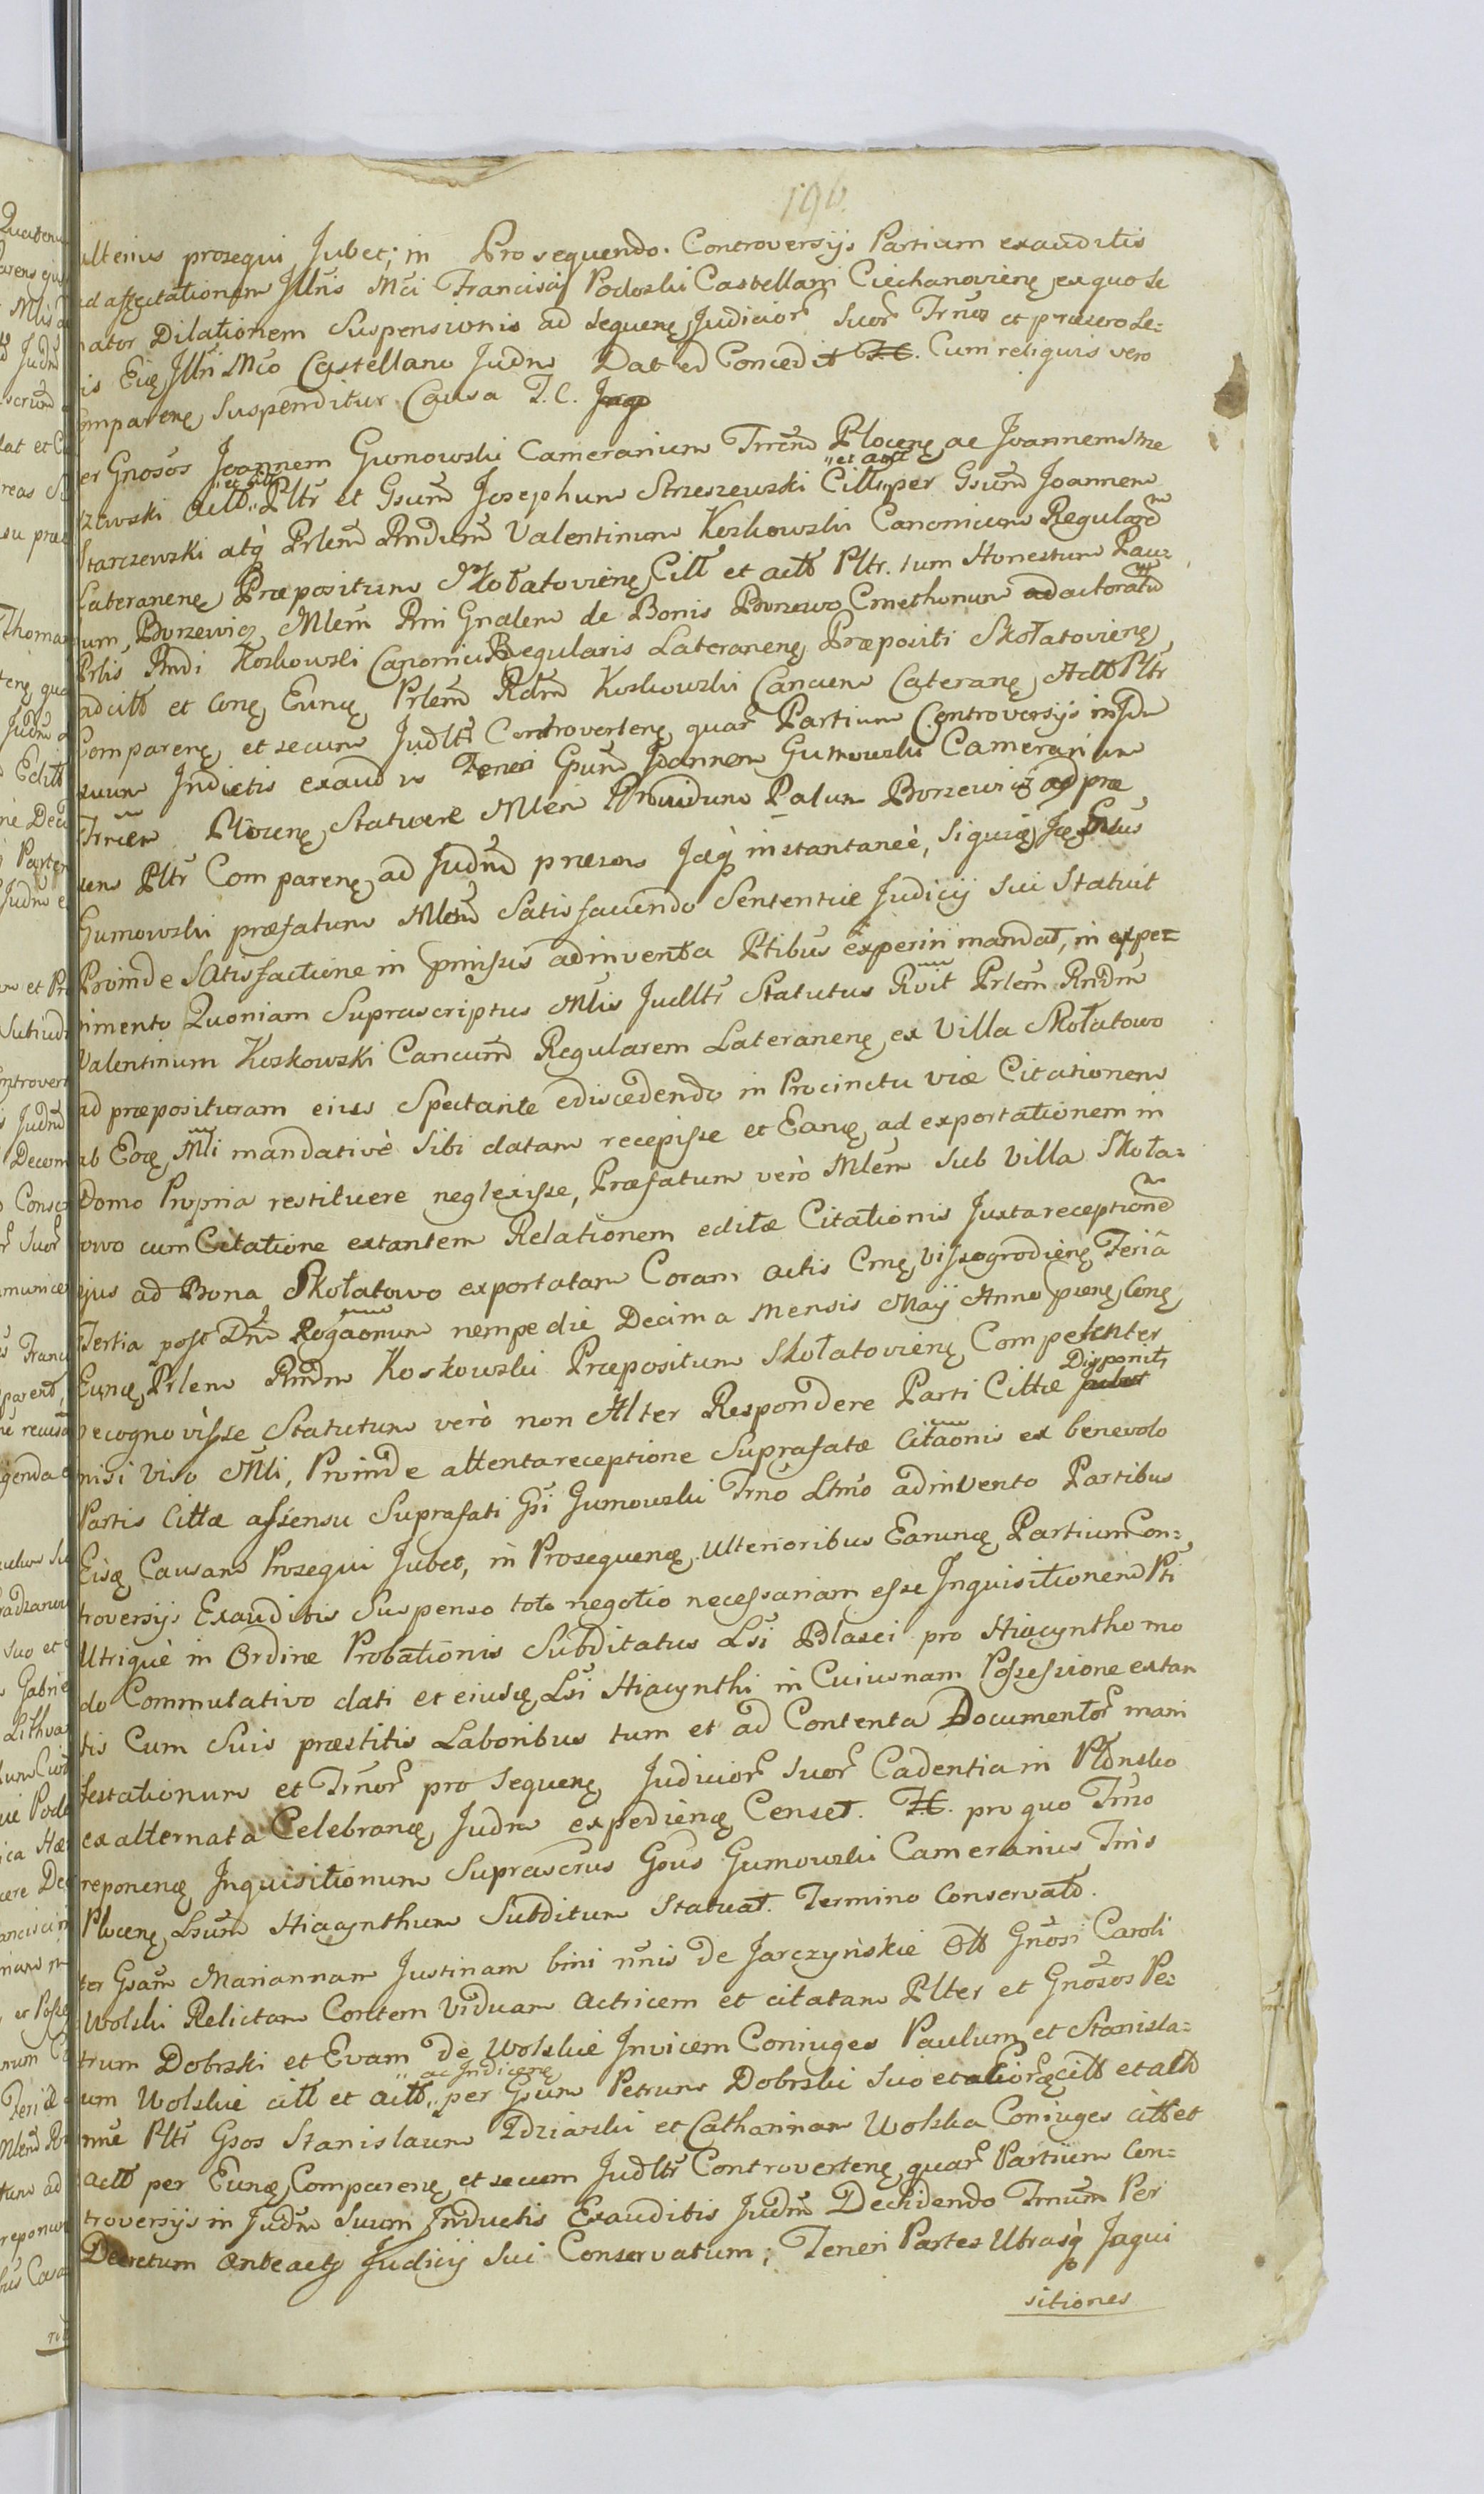 196.
ulterius prosequi Jubet; in Prosequendo. Controversijs Partium exauditis
ad affectationem Jllris Mci Francisci Podoski Castellani Ciechanovieñ, ex quo se
nator Dilationem Suspensionis ad sequeñ, Judicior Suor Trnos et præsero se=
is Eię, Jllri Mco Castellano Judm Dat et Concedit T.C. Cum reliquis vero
mpareñ, Suspenditur Causa T.C.
er Gnosos Joannem Gumowski Camerarium TrremPloceñ, ac Joannem Stre
szewski actt „et citt„ Pltr et Gsum Josephum Strzeszewski Citt „et actt„ per Gsum Joannem
Starczewski atq Prlem Rndum Valentinum Koskowski Canonicum Regularem
Lateraneñ, Præpositum Skołatovieñ, Citt et actt Pltr. tum Honestum Pau=
lum, Borzewicz, Mlem Rni Gnalem de Bonis Borzewo Cmethonum ad actoratum
Prlis Rndi Koskowski Canonici Regularis Lateraneñ, Præpositi Skołatovieñ,
ad citt et Coñ, Eunę, Prlem Rdm Koskowski Cancum Lateranę, Actt Pltr
Compareñ, et secum Judltr Controverteñ, quar Partium Controversijs in Jdm
suum Inductis exaud is Teneri Gsum Joannem Gumowski Camerarium
Trrem Ploceñ, Statuere Mlem Providum Palum Borzewicz ad præ
sens Pltr Compareñ, ad Judm præsens Jdq instantaneè, Siquię, Ję, Gsus
Gumowski præfatum Mlem Satisfaciendo Sententiæ Judicij sui Statuit
Proinde Satisfactione in pmissis adinventa Ptibus experiri mandat, in expe=
rimento Quoniam Suprascriptus Mlis Judltr Statutus Rvit Prlem Rndm
Valentinum Koskowski Cancum Regularem Lateraneñ, ex Villa Skołatowo
ad præposituram eius Spectante ediscedendo in Procinctu viæ Citationem
ab Eoę, Mli mandativè Sibi datam recepisse et Eanę, ad exportationem in
Domo Propria restituere neglexisse, Præfatum verò Mlem sub Villa Skoła=
towo cum Citatione extantem Relationem editæ Citationis Juxta receptionem
ejus ad Bona Skołatowo exportatam Coram actis Crneñ, Vissogrodieñ, Feriâ
Tertia post Dm Rogaonum nempe die Decima Mensis Maij Anno præñ, Coñ,
Eunę, Prlem Rndm Koskowski Præpositum Skołatovieñ, Competenter
recognovisse Statutum verò non Alter Respondere Parti Cittæ Disponit,
nisi viso Mli, Proinde attenta receptione Suprafatæ Citaonis ex benevolo
Partis Cittæ assensu Suprafati Gsi Gumowski Trno Ltmo adinvento Partibus
Eisę, Causam Prosequi Jubet, in Prosequenę, Ulterioribus Earunę, Partium Con=
troversijs Exauditis Suspenso toto negotio necessariam esse Inquisitionem Pti
Utriquè in Ordine Probationis Subditatus Lsi Blasei pro Hiacyntho mo
do Commutativo dati et eiusę, Lsi Hiacynthi in Cuiusnam Possessione extan
tis Cum Suis præstitis Laboribus tum et ad Contenta Documentor mani
festationum et Trnor pro Sequeñ, Judicior Suor Cadentia in Płonsko
ex alternata Celebranę, Judm expedieñ, Censet. T.C. pro quo Trno
reponenę, Inquisitionum Suprascrus Gsus Gumowski Camerarius Trris
Ploceñ, Lsum Hiacynthum Subditum Statuat. Termino Conservato.
ter Gsam Mariannam Justinam bini nnis de Jarczynskie Ott Gnosi Caroli
Wolski Relictam Contem Viduam Actricem et citatam Plter et Gnosos Pe=
trum Dobrski et Evam de Wolskie Invicem Coniuges Paulum et Stanisla=
um Wolskie citt et actt „ac Indiceñ„ per Gsum Petrum Dobrski Suo et alior citt et actt
nne Pltr Gsos Stanislaum Zdziarski et Catharinam Wolska Coniuges citt et
actt per Eunę, Compareñ, et secum Judltr Controverteñ, quar Partium Con=
troversijs in Judm Suum Inductis Exauditis Judm Decidendo Trnum Per
Decretum Anteacty Judicij Sui Conservatum; Teneri Partes Utrasq Jnqui
sitiones